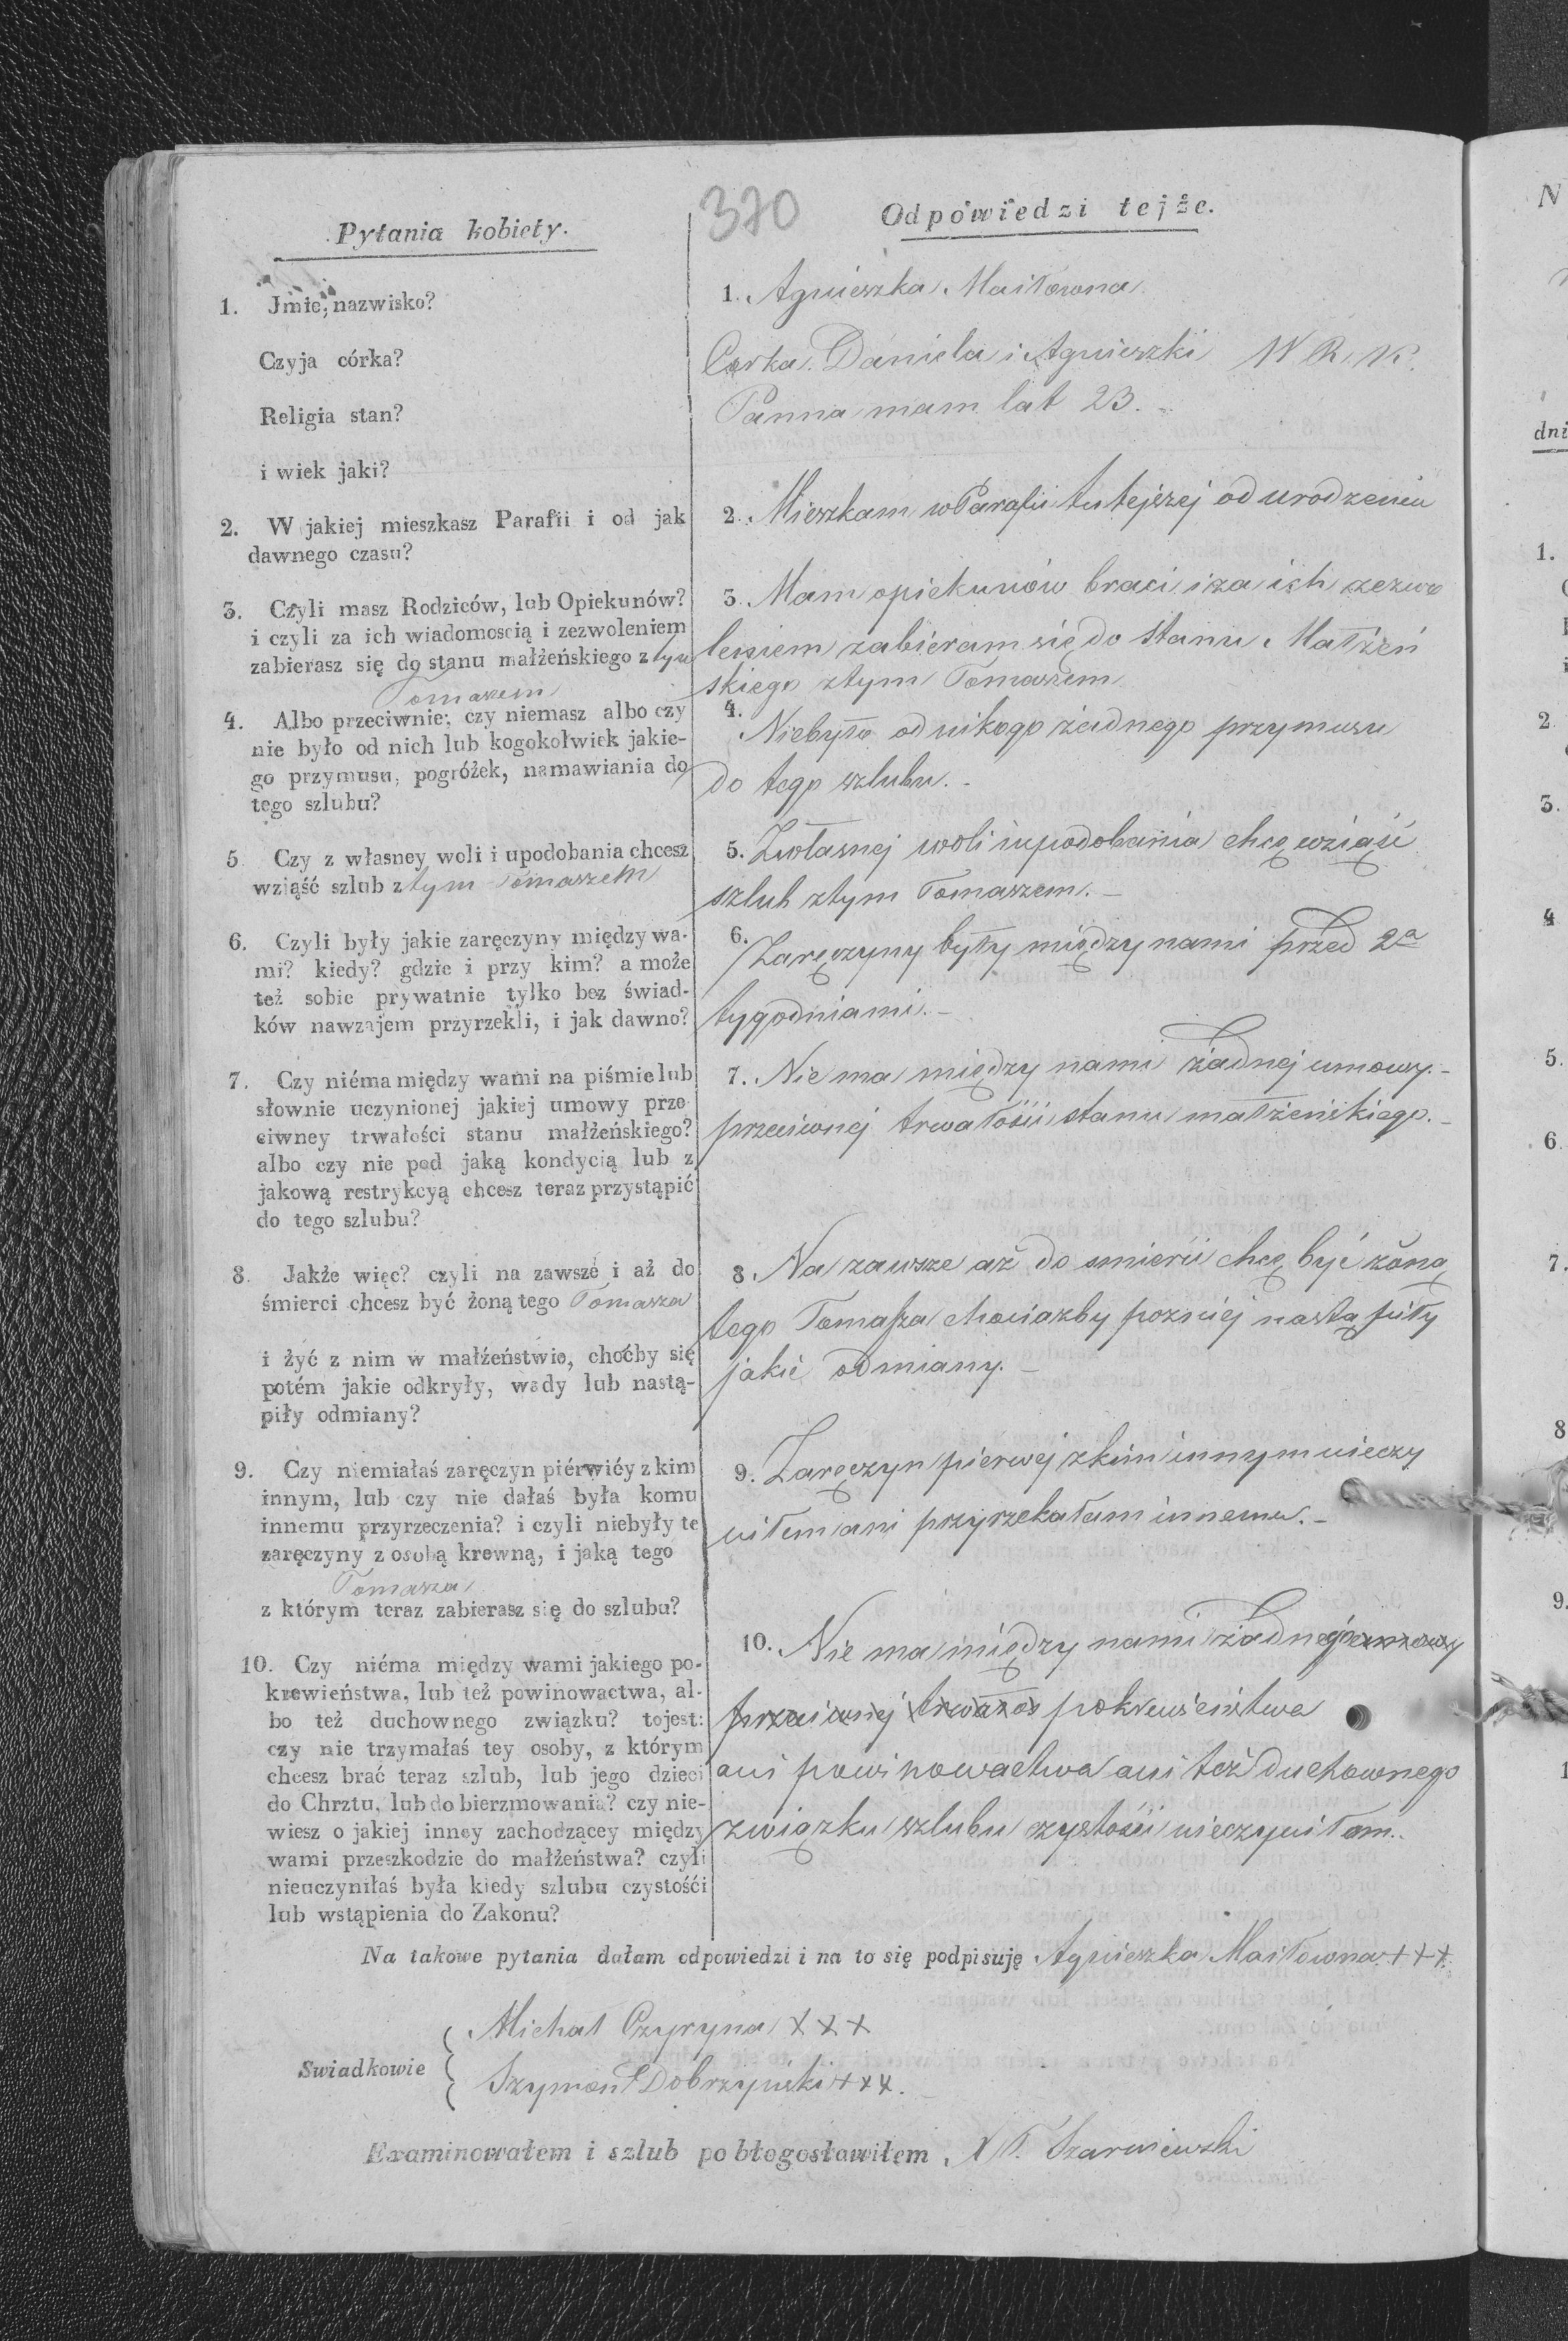 370
Pytania kobiety.
Odpowiedzi tejże.
1. Jmie, nazwisko?
1. Agnieszka Maiłowna
Czyja córka?
Corka Daniela i Agnieszki W R. K.
Religia stan?
Panna mam lat 23.
i wiek jaki?
2. W jakiej mieszkasz Parafii i od jak
dawnego czasu?
2. Mieszkam w Parafii tutejszej od urodzenia
3. Czyli masz Rodziców, lub Opiekunów?
i czyli za ich wiadomoscią i zezwoleniem
zabierasz się do stanu małżeńskiego z tym
Tomaszem
3. Mam opiekunów braci i za ich zezwo
leniem zabieram się do stanu Małżeń
skiego z tym Tomaszem
4. Albo przeciwnie; czy niemasz albo czy
nie było od nich lub kogokołwiek jakie-
go przymusu, pogróżek, namawiania do
tego szlubu?
4. Niebyło od nikogo żadnego przymusu
do tego szlubu.-
5 Czy z własney woli i upodobania chcesz
wziąść szlub z tym Tomaszem
5. Zwłasnej woli i upodobania chcę wziąść
szlub z tym Tomaszem.-
6. Czyli były jakie zaręczyny między wa-
mi? kiedy? gdzie i przy kim? a może
też sobie prywatnie tylko bez świad-
ków nawzajem przyrzekli, i jak dawno?
6. Zaręczyny były między nami przed 2a
tygodniami.-
7. Czy niéma między wami na piśmie lub
słownie uczynionej jakiej umowy prze
ciwney trwałości stanu małżeńskiego?
albo czy nie pod jaką kondycią lub z
jakową restrykcyą chcesz teraz przystąpić
do tego szlubu?
7. Nie ma między nami żadnej umowy.-
przeciwnej trwałości stanu małżeńskiego.-
8. Jakże więc? czyli na zawsze i aż do
śmierci chcesz być żoną tego Tomasza
i żyć z nim w małżeństwie, choćby się
potém jakie odkryły, wady lub nastą-
piły odmiany?
8. Na zawsze aż do smierci chcę być żoną
tego Tomasza chociazby pozniej nastąpiły
jakie odmiany.-
9. Czy niemiałaś zaręczyn piérwiéy z kim
innym, lub czy nie dałaś była komu
innemu przyrzeczenia? i czyli niebyły te
zaręczyny z osobą krewną, i jaką tego
Tomasza
z którym teraz zabierasz się do szlubu?
9. Zaręczyn pierwej z kim innym nieczy
niłem ani przyrzekałam innemu.-
10. Czy niéma między wami jakiego po-
krewieństwa, lub też powinowactwa, al-
bo też duchownego związku? tojest:
czy nie trzymałaś tey osoby, z którym
chcesz brać teraz szlub, lub jego dzieci
do Chrztu, lub do bierzmowania? czy nie-
wiesz o jakiej inney zachodzącey między
wami przeszkodzie do małżeństwa? czyli
nieuczyniłaś była kiedy szlubu czystośći
lub wstąpienia do Zakonu?
10. Nie ma między nami żadnego umowy
przeciwnej trwałos pokrewieństwa
ani powinowactwa ani też duchownego
związku szlubu czystości nieczyniłam.
Na takowe pytania dałam odpowiedzi i na to się podpisuję Agnieszka Maiłowna +++
Swiadkowie
Michał Czyryna XXX
Szymon Dobrzyński +++.
Examinowałem i szlub pobłogosławiłem, X T. Szarniewski
N
dni
1.
2
3.
4
5.
6.
7.
8
9.
1